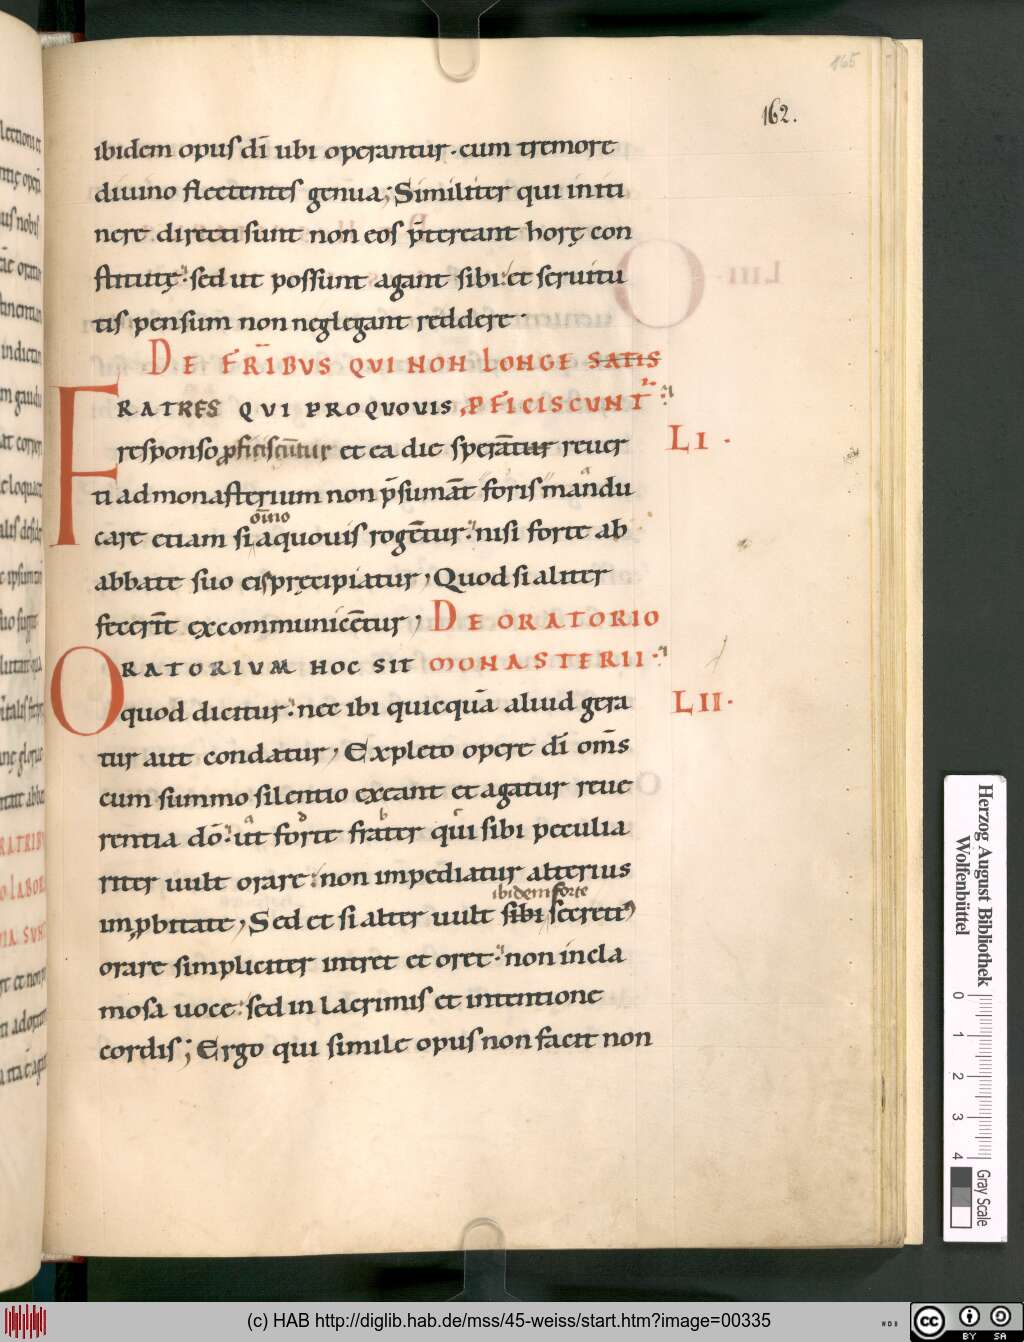 165
162.
ibidem opus dī ubi operantur. cum tremore
diuino flectentes genua; Similiter qui in iti
nere directi sunt non eos p̄tereant horę con
stitutę. sed ut possunt agant sibi. et seruitu
tis pensum non neglegant reddere.
DE FRĪBVS QVI NON LONGE SATIS
FRATRES QVI PROQVOVIS PFICISCVNT̄
responso ꝓficiscūtur et ea die sperātur reuer
LI.
ti ad monasterium non p̄sumāt foris mandu
om̄ino
care etiam si a quouis rogētur. nisi forte ab
abbate suo eis pręcipiatur, Quod si aliter
fecerīt excommunicētur, DE ORATORIO
ORATORIVM HOC SIT MONASTERII.
quod dicitur. nec ibi quicquā aliud gera
LII.
tur aut condatur, Expleto opere dī om̄s
cum summo silentio exeant et agatur reue
rentia dō. ut forte frater qui sibi peculia
riter uult orare. non impediatur alterius
ibidem forte
inꝓbitate, Sed et si alter uult sibi secreti⁹
orare simpliciter intret et oret. non in cla
mosa uoce. sed in lacrimis et intentione
cordis; Ergo qui simile opus non facit non
LIII
Herzog August Bibliothek
Wolfenbüttel
0 1 2 3 4
Gray Scale
(c) HAB http://diglib.hab.de/mss/45-weiss/start.htm?image=00335
cc BY SA